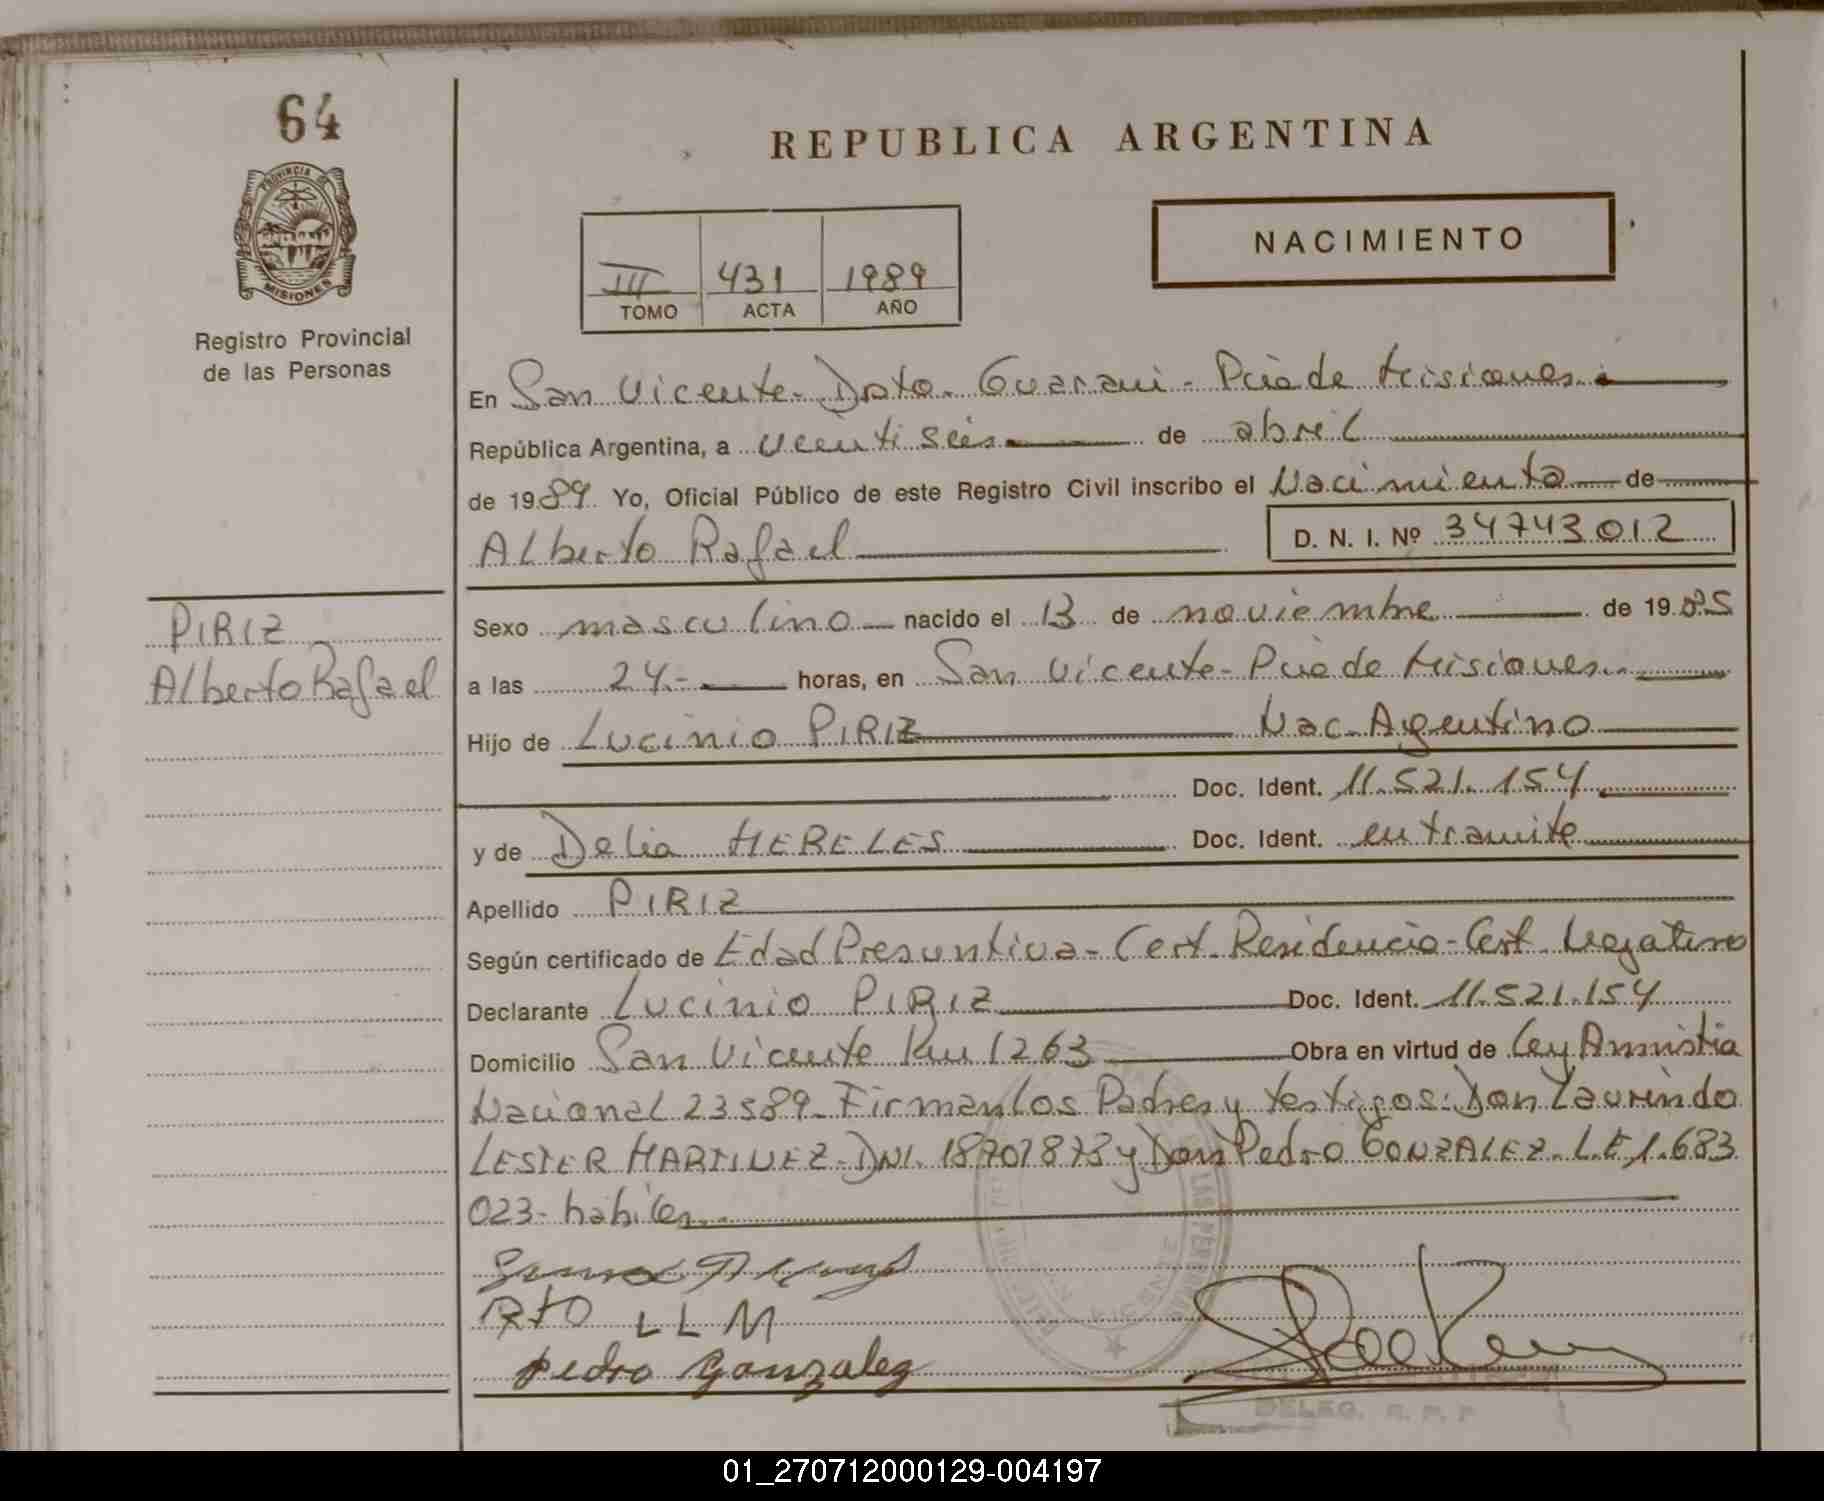 64
PROVINCIA DE
MISIONES
Registro Provincial
de las Personas
REPUBLICA ARGENTINA
NACIMIENTO
III 431 1989
TOMO ACTA AÑO
En San Vicente - Dpto. Guarani - Pcia de Misiones.
República Argentina, a veintiseis de abril
de 1989. Yo, Oficial Público de este Registro Civil inscribo el Nacimiento de
Alberto Rafael D. N. I. Nº 34743012
PIRIZ
Alberto Rafael
Sexo masculino nacido el 13 de noviembre de 1985
a las 24.- horas, en San Vicente - Pcia de Misiones.
Hijo de Lucinio PIRIZ Nac. Agentino
Doc. Ident. 11.521.154
y de Delia HERELES Doc. Ident. en tramite
Apellido PIRIZ
Según certificado de Edad Presuntiva - Cert. Residencia - Cert. Negativo
Declarante Lucinio PIRIZ Doc. Ident. 11.521.154
Domicilio San Vicente Km 1263 Obra en virtud de Ley Amnistia
Nacional 23589. Firman los Padres y testigos: Don Laurindo
LESTER MARTINEZ - DNI. 18701873 y Don Pedro GONZALEZ. L.E. 1.683
023- habiles.
LLM
Pedro Gonzalez
VICENTE
DELEG. R. P. P
01_270712000129-004197